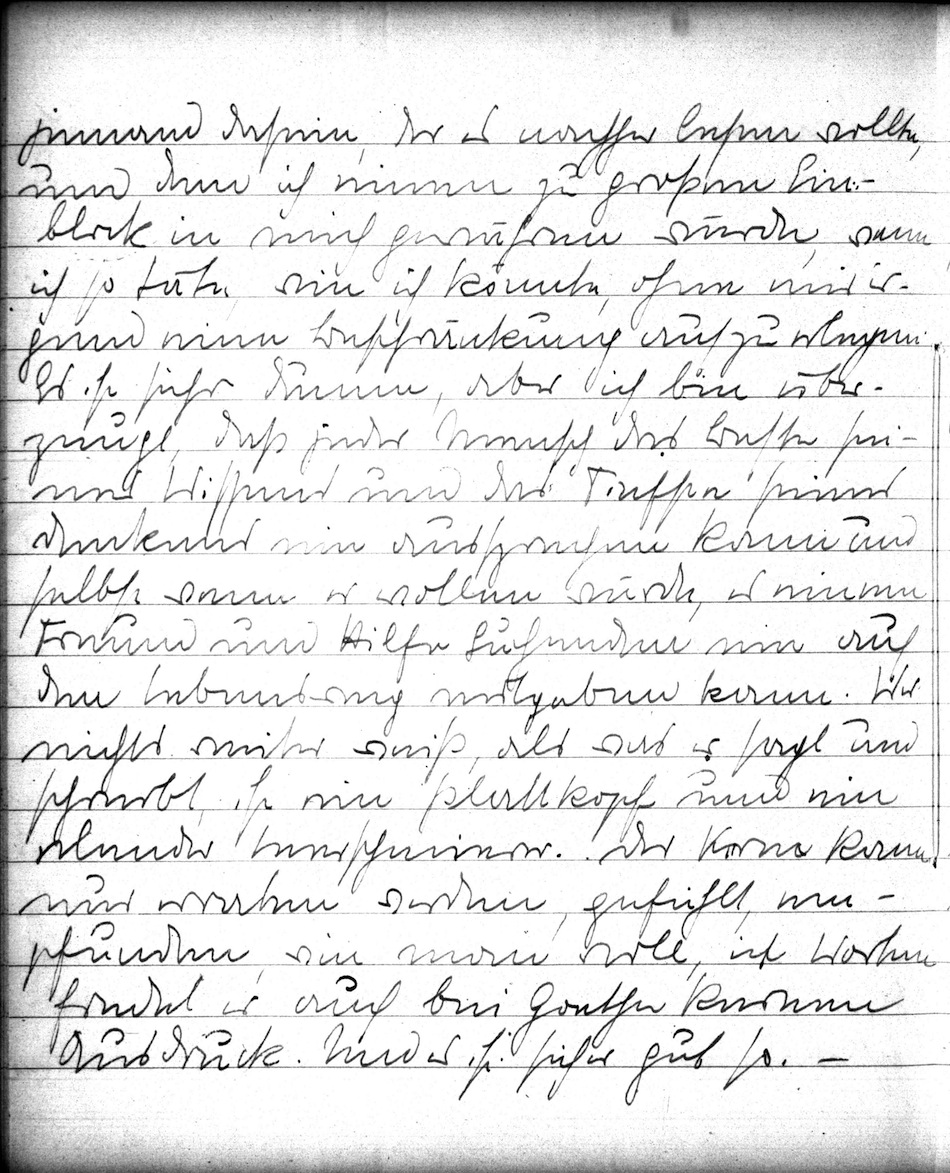 jemand dasein, der es nachher lesen sollte,
und dem ich einen zu großen Ein-
blick in mich gewähren würde, wenn
ich so täte, wie ich könnte, ohne mir ir-
gend eine Beschränkung aufzuerlegen.
Es ist sehr dumm, aber ich bin über-
zeugt, daß jeder Mensch das Beste sei-
nes Wissens und das Tiefste seines
Denkens nie aussprechen kann und
selbst wenn er wollen würde, es einem
Freund und Hilfe Suchenden nie auf
den Lebensweg mitgeben kann. Wer
nichts weiter weiß, als was er sagt und
schreibt, ist ein Plattkopf und ein
elender. Der Kern kann
nur erraten werden, gefühlt, em-
pfunden, wie man will, in Worten
findet er auch bei Goethe keinen
Ausdruck. Und es ist sicher gut so. —